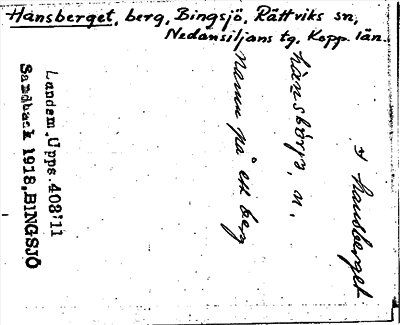 Hansberget, berg, Bingsjö, Rättviks sn,
Nedansiljans tg, Kopp. län.
* Hansberget
hànsbärjə, n.
namn på ett berg
Landsm. Upps. 408:11
Sandback 1918. BINGSJÖ